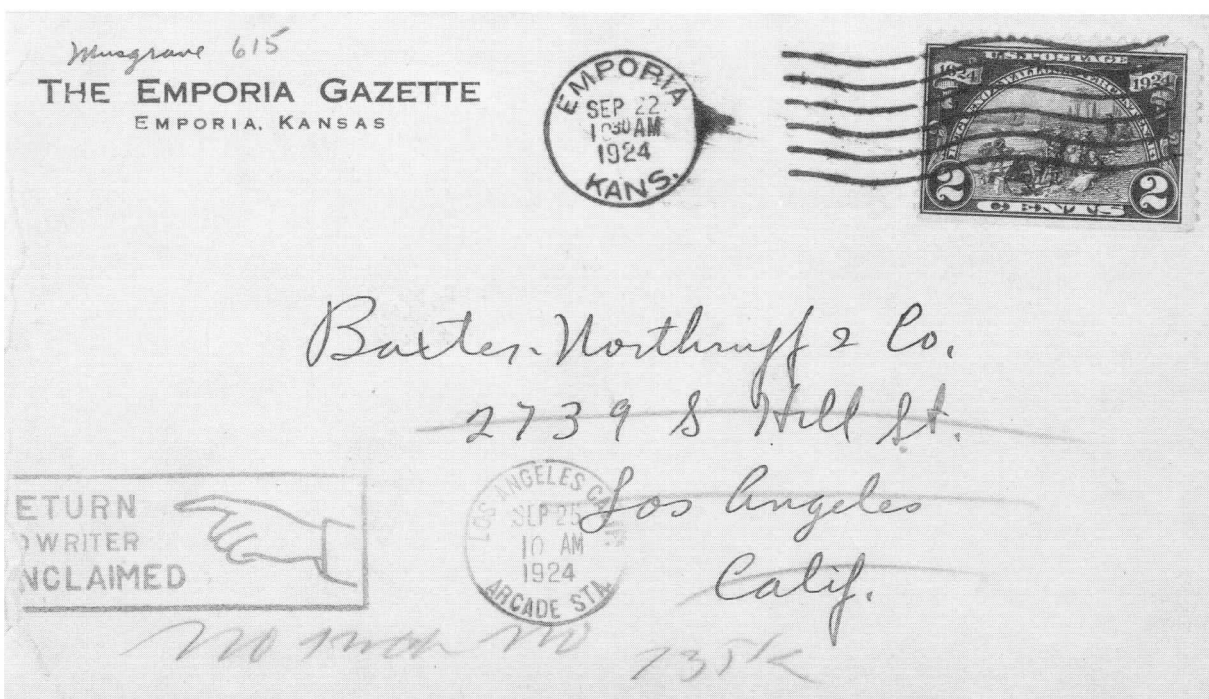 Musgrave 615
THE EMPORIA GAZETTE
EMPORIA, KANSAS
EMPORIA
SEP 22
1030 AM
1924
KANS.
U.S. POSTAGE
1924 1924
2 CENTS 2
Baxter-Northruff & Co.
2739 S Hill St.
Los Angeles
Calif.
ETURN
O WRITER
NCLAIMED
LOS ANGELES CALIF.
SEP 25
10 AM
1924
ARCADE STA.
No such no